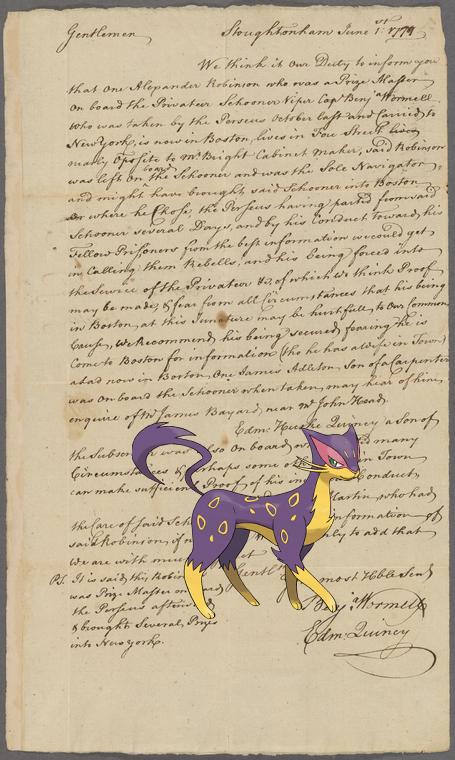 Gentlemen Stoughtonham June 1st: 1779
We think it Our Duty to inform you
that One Alexander Robinson who was a Prize Master
On board the Privateer Schooner Viper Capt Benj.a Wormell
who was taken by the Perseus October last and carried to
New York, is now in Boston, lives in Fore Street
nearly Oposite to Mr Bright Cabinet Maker, said Robinson
was left On board the Schooner and was the Sole Navigator
and might have brought said Schooner into Boston
or where he Chose, the Perseus having parted from said
Schooner several Days, and by his Conduct toward his
Fellow Prisoners from the best information we could get
in Calling them Rebells, and his being forced into
the Service of the Privateer &c, of which we think Proof
may be made, & fear from all Circumstances that his being
in Boston, at this Juncture may be hurtfull to Our Common
Cause, We Recommend his being secured, fearing he is
Come to Boston for information (tho he has a Wife in Town)
a Lad now in Boston, One James Adleton, Son of a Carpenter
was On board the Schooner when taken, may hear of him,
enquire of Mr James Bayard, near Mr John Head.
Edm: Quincy a Son of
the Subscriber was also On board, many
Circumstances & perhaps some in Town
can make sufficient Proof of his Conduct,
Martin, who had
the Care of said Sch information of
said Robinson, to add that
We are with most Hble Serv
PS. It is said this Robin
was Prize Master on board
the Perseus after
& brought Several Prizes
into New York.
Benj.a Wormell
Edm: Quincy